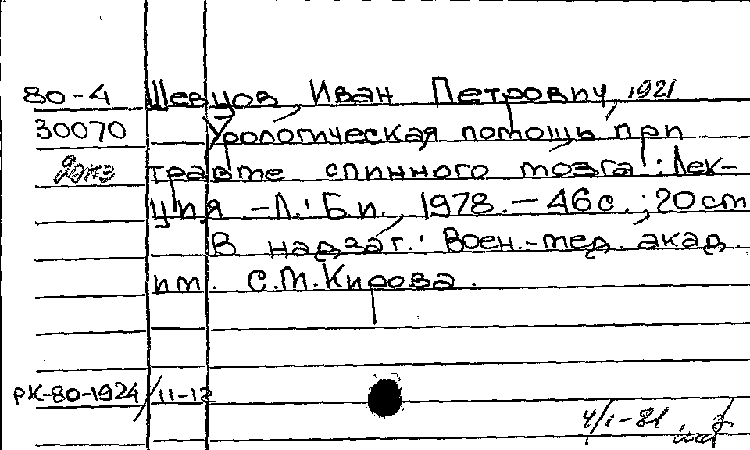 80-4 Шевцов, Иван Петрович, 1921
30070 Урологическая помощь при
травме спинного мозга: Лек-
ция - Л.: Б.и., 1978. - 46с.; 20 cm
В надзаг.: Воен.-мед. акад.
им. С.М. Кирова.
РК-80-1924/11-12
4/I-81